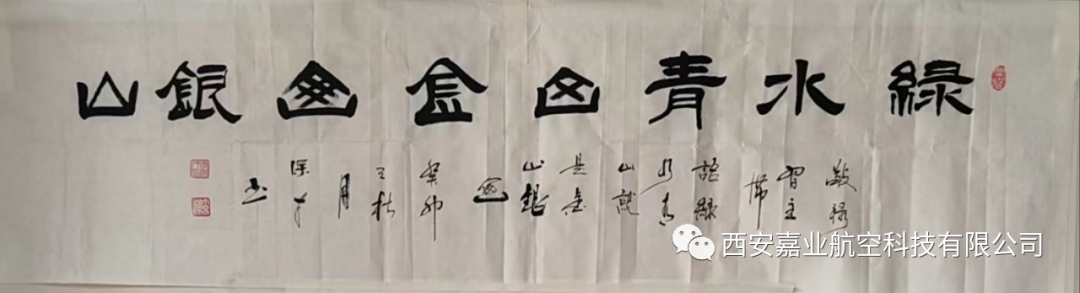 綠水青山金山銀山
敬録
習主
席
語綠
水青
山就
是金
山銀
山
癸卯
王秋
月
书
西安嘉业航空科技有限公司